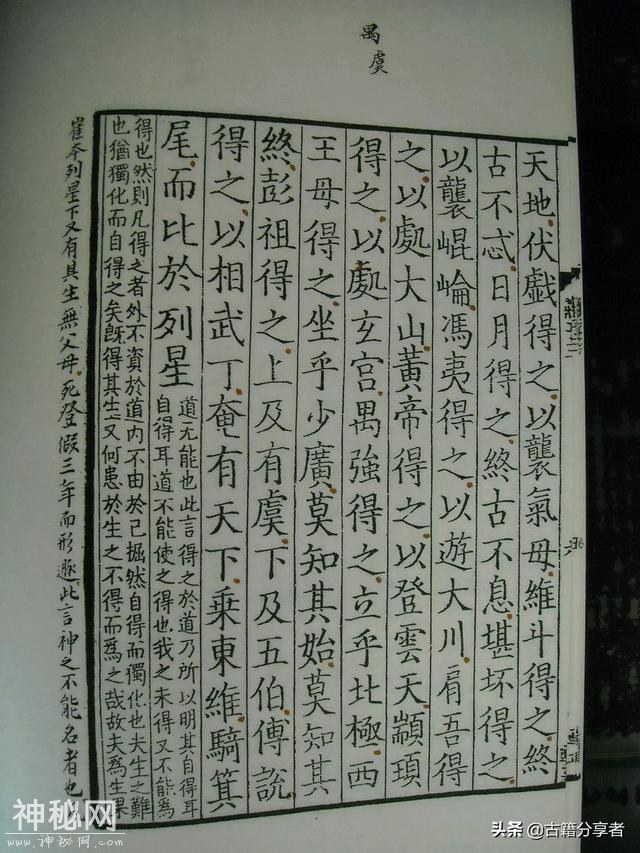 禺虞
天地伏戲得之以襲氣母維斗得之終
古不忒日月得之終古不息堪坏得之
以襲崐崘馮夷得之以遊大川肩吾得
之以處大山黃帝得之以登雲天顓頊
得之以處玄宮禺強得之立乎北極西
王母得之坐乎少廣莫知其始莫知其
終彭祖得之上及有虞下及五伯傅說
得之以相武丁奄有天下乘東維騎箕
尾而比於列星
道无能也此言得之於道乃所以明其自得耳
自得耳道不能使之得也我之未得又不能爲
得也然則凡得之者外不資於道內不由於己掘然自得而獨化也夫生之難
也猶獨化而自得之矣旣得其生又何患於生之不得而爲之哉故夫爲生果
崔本列星下又有其生無父母死登假三年而形遯此言神之不能名者也
神秘网
www.神秘网.com
头条 @古籍分享者